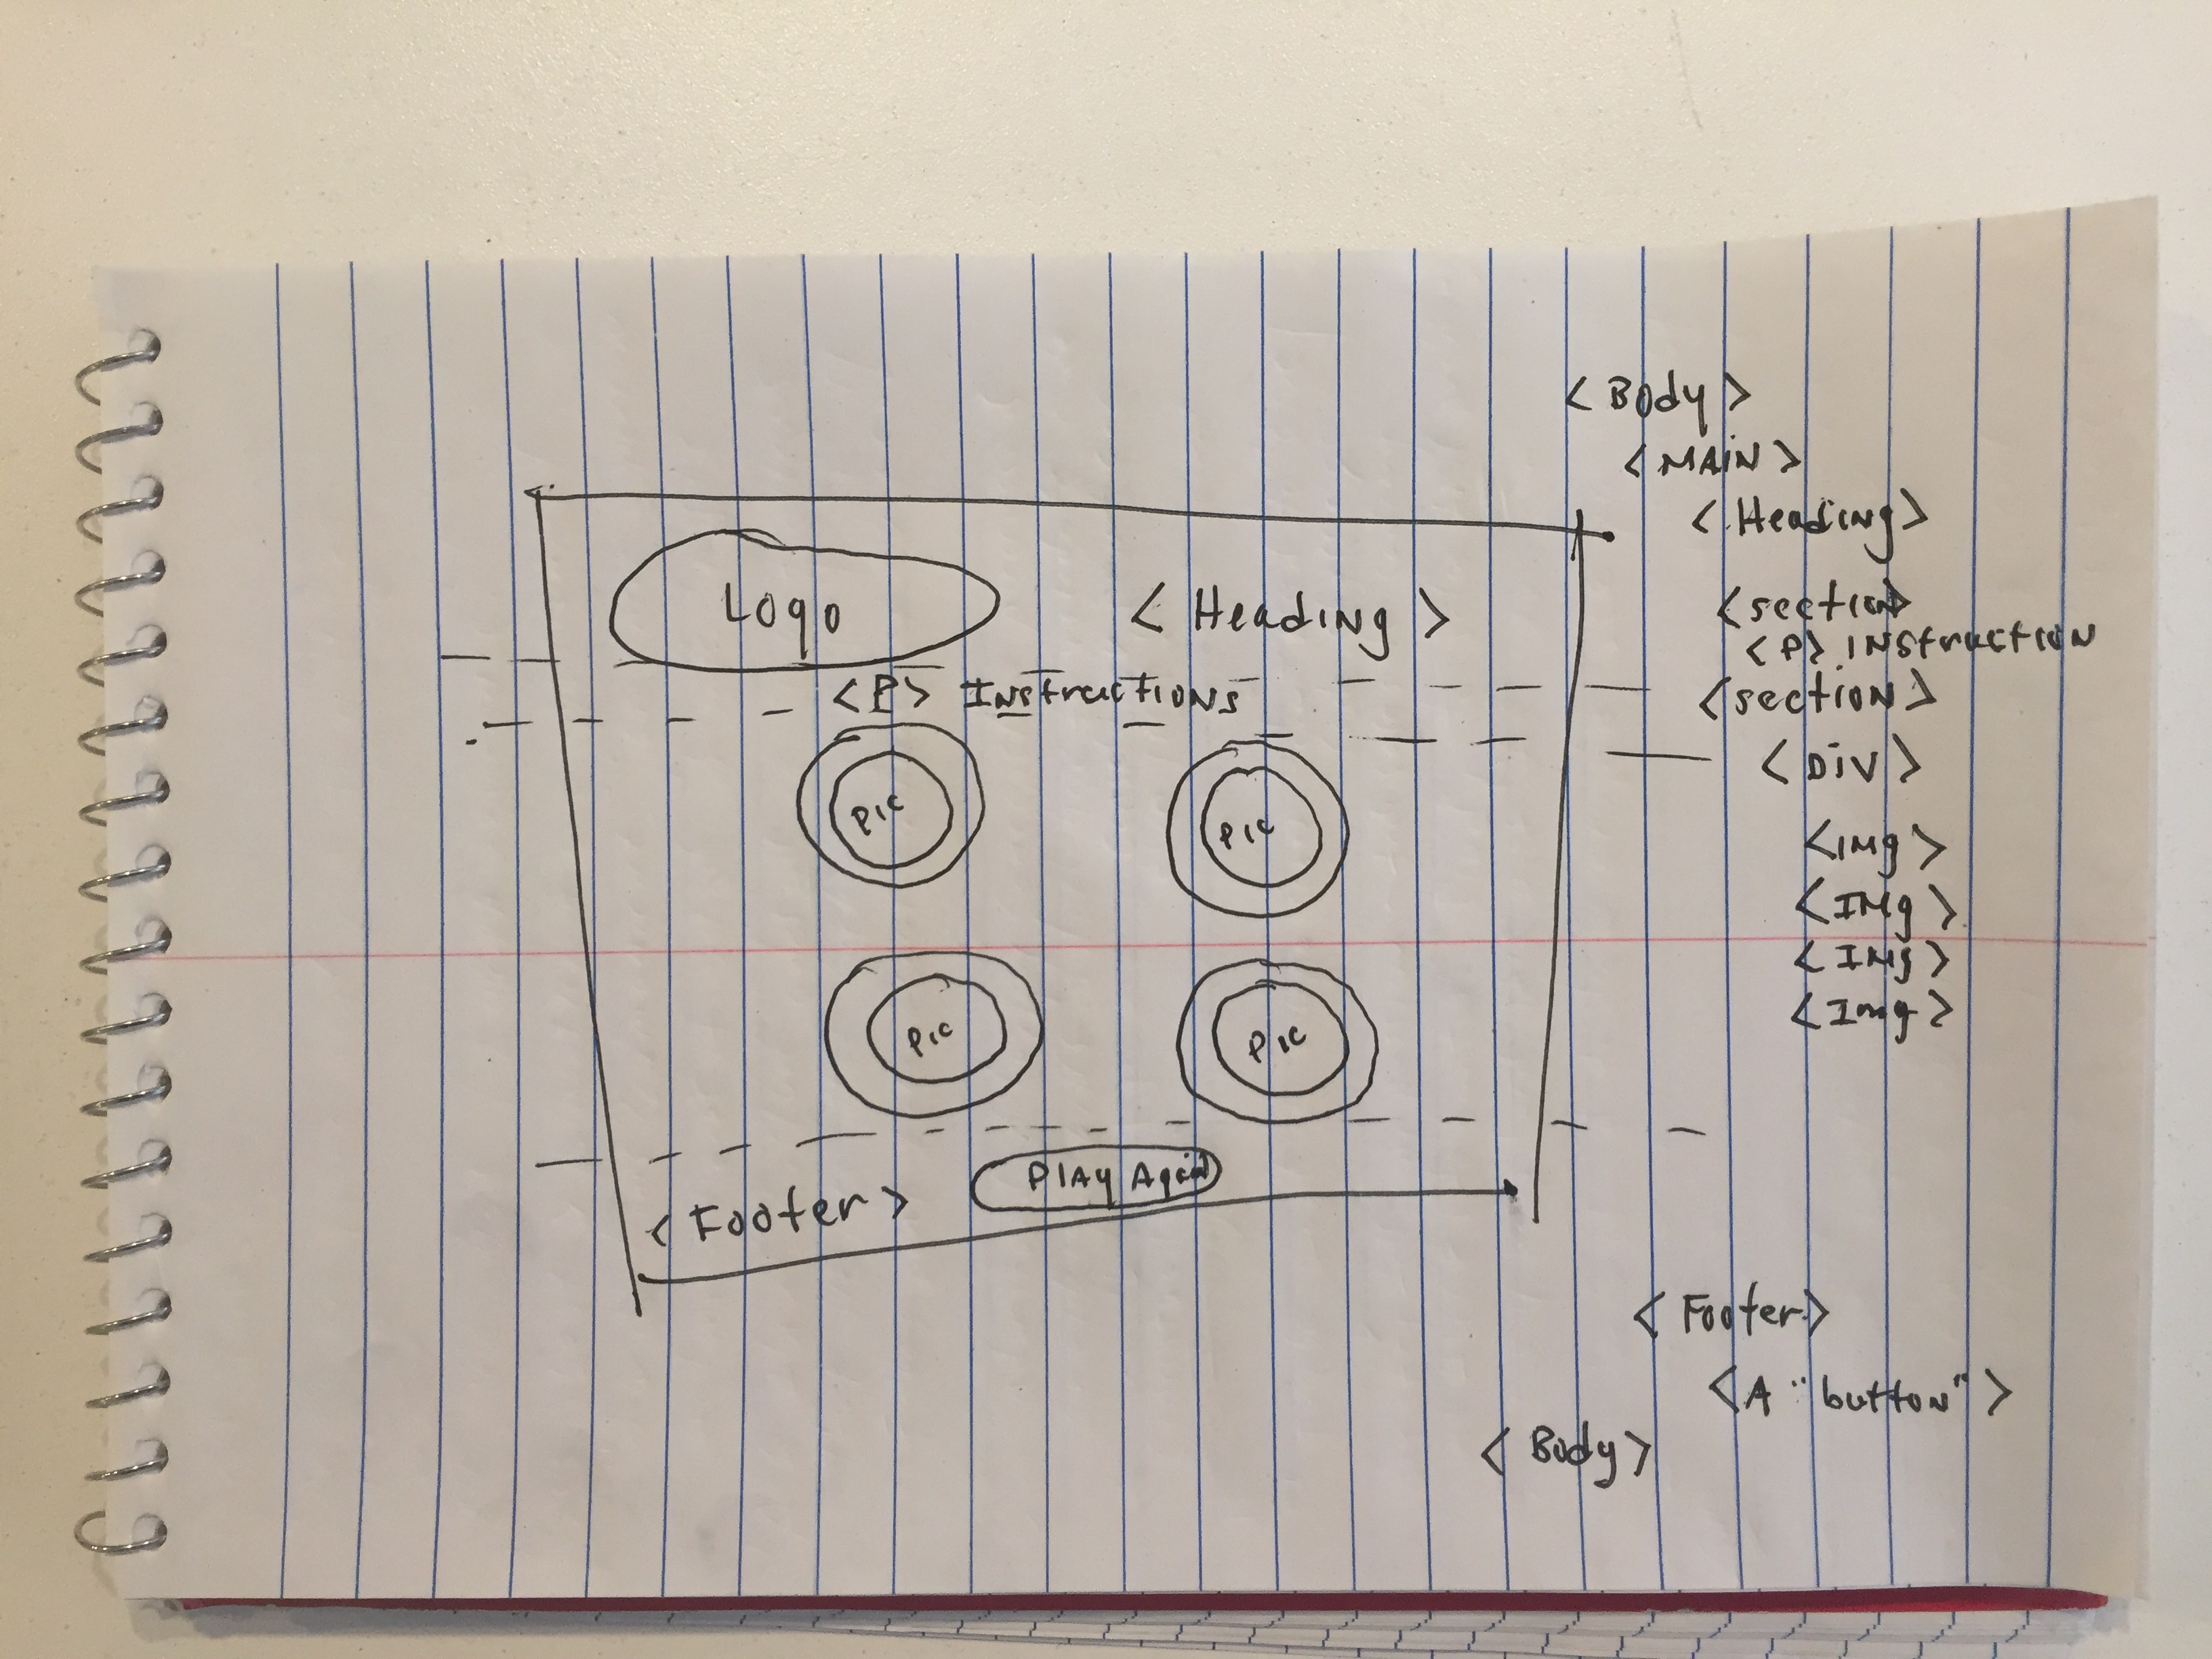 Logo
<Heading>
<P> Instructions
PIC
PIC
PIC
PIC
<Footer>
PlAy Again
<Body>
<MAIN>
<Heading>
<section>
<P> instruction
<section>
<DiV>
<Img>
<IMg>
<IMg>
<Img>
<Footer>
<A "button">
<Body>